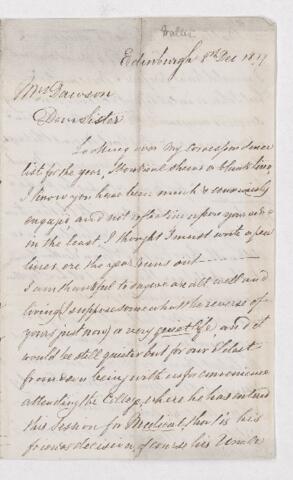 Edinburgh 8th Dec 18
Mrs Dawson
Dear Sister
Looking over my correspondence
list for the year, Montreal shews a blank line,
I know you have been much & 
engag'd, and not reflecting upon you
in the least I thought I must write a few
lines ere the year runs out
I am thankful to say we are all well and
living (I suppose somewhat the reverse of
yours just now) a very quiet life and it
would be still quieter but for our eldest
from being with us for convenience
attending the College, where he has entered
this Session for Medical, that is his
decision, of course his Uncle